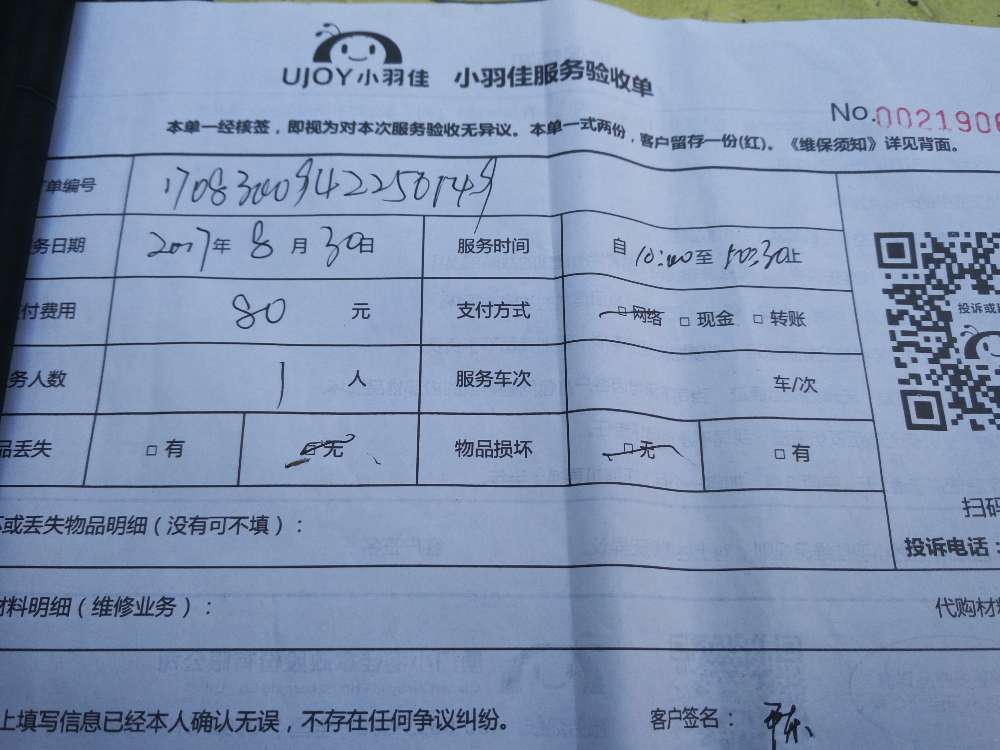 UJOY小羽佳 小羽佳服务验收单
No.0021906
本单一经核签，即视为对本次服务验收无异议。本单一式两份，客户留存一份(红)。《维保须知》详见背面。
单编号
务日期 2017年 8月 30日 服务时间 自 10:00至 止
付费用 80 元 支付方式 □网络 □现金 □转账
投诉或
务人数 1 人 服务车次 车/次
品丢失 □有 □无 物品损坏 □无 □有
扫码
或丢失物品明细（没有可不填）：
投诉电话：
材料明细（维修业务）：
代购材料
上填写信息已经本人确认无误，不存在任何争议纠纷。 客户签名：